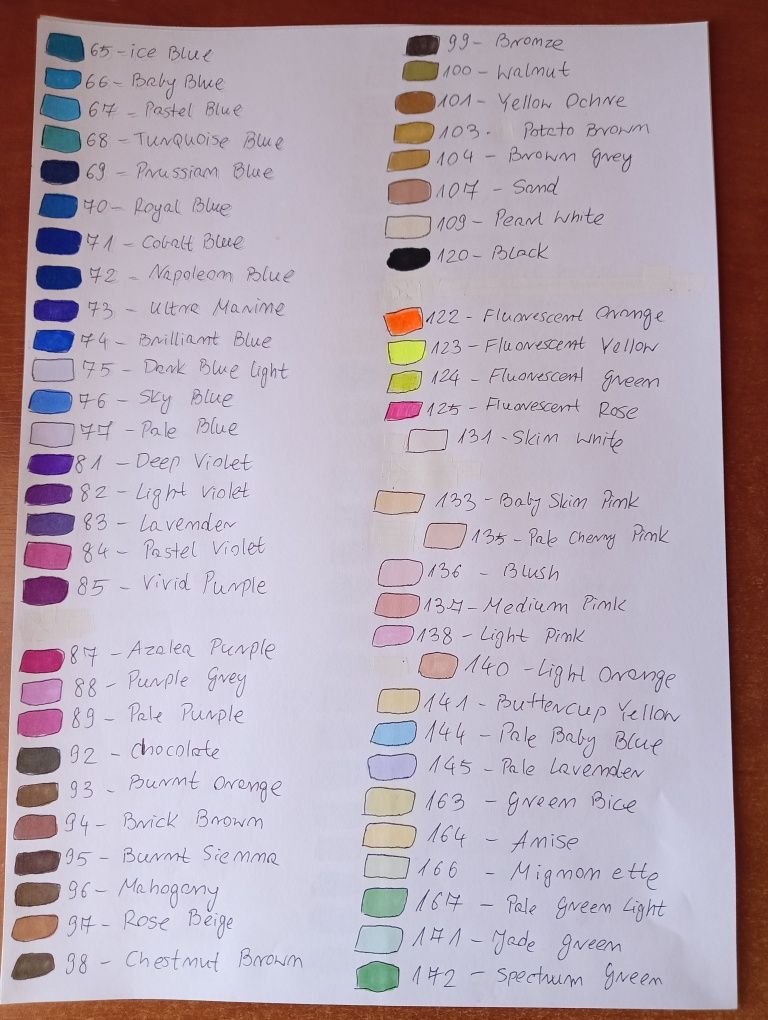 65 - ice Blue
66 - Baby Blue
67 - Pastel Blue
68 - Turquoise Blue
69 - Prussian Blue
70 - Royal Blue
71 - Cobalt Blue
72 - Napoleon Blue
73 - ultra Marine
74 - Brilliant Blue
75 - Dark Blue light
76 - Sky Blue
77 - Pale Blue
81 - Deep Violet
82 - Light Violet
83 - Lavender
84 - Pastel Violet
85 - Vivid Purple
87 - Azalea Purple
88 - Purple Grey
89 - Pale Purple
92 - Chocolate
93 - Burnt Orange
94 - Brick Brown
95 - Burnt Sienna
96 - Mahogany
97 - Rose Beige
98 - Chestnut Brown
99 - Bronze
100 - Walnut
101 - Yellow Ochre
103 - Potato Brown
104 - Brown Grey
107 - Sand
109 - Pearl White
120 - Black
122 - Fluorescent Orange
123 - Fluorescent Yellow
124 - Fluorescent Green
125 - Fluorescent Rose
131 - Skin White
133 - Baby Skin Pink
135 - Pale Cherry Pink
136 - Blush
137 - Medium Pink
138 - Light Pink
140 - Light Orange
141 - Buttercup Yellow
144 - Pale Baby Blue
145 - Pale Lavender
163 - Green Bice
164 - Anise
166 - Mignonette
167 - Pale Green Light
171 - Jade Green
172 - Spectrum Green